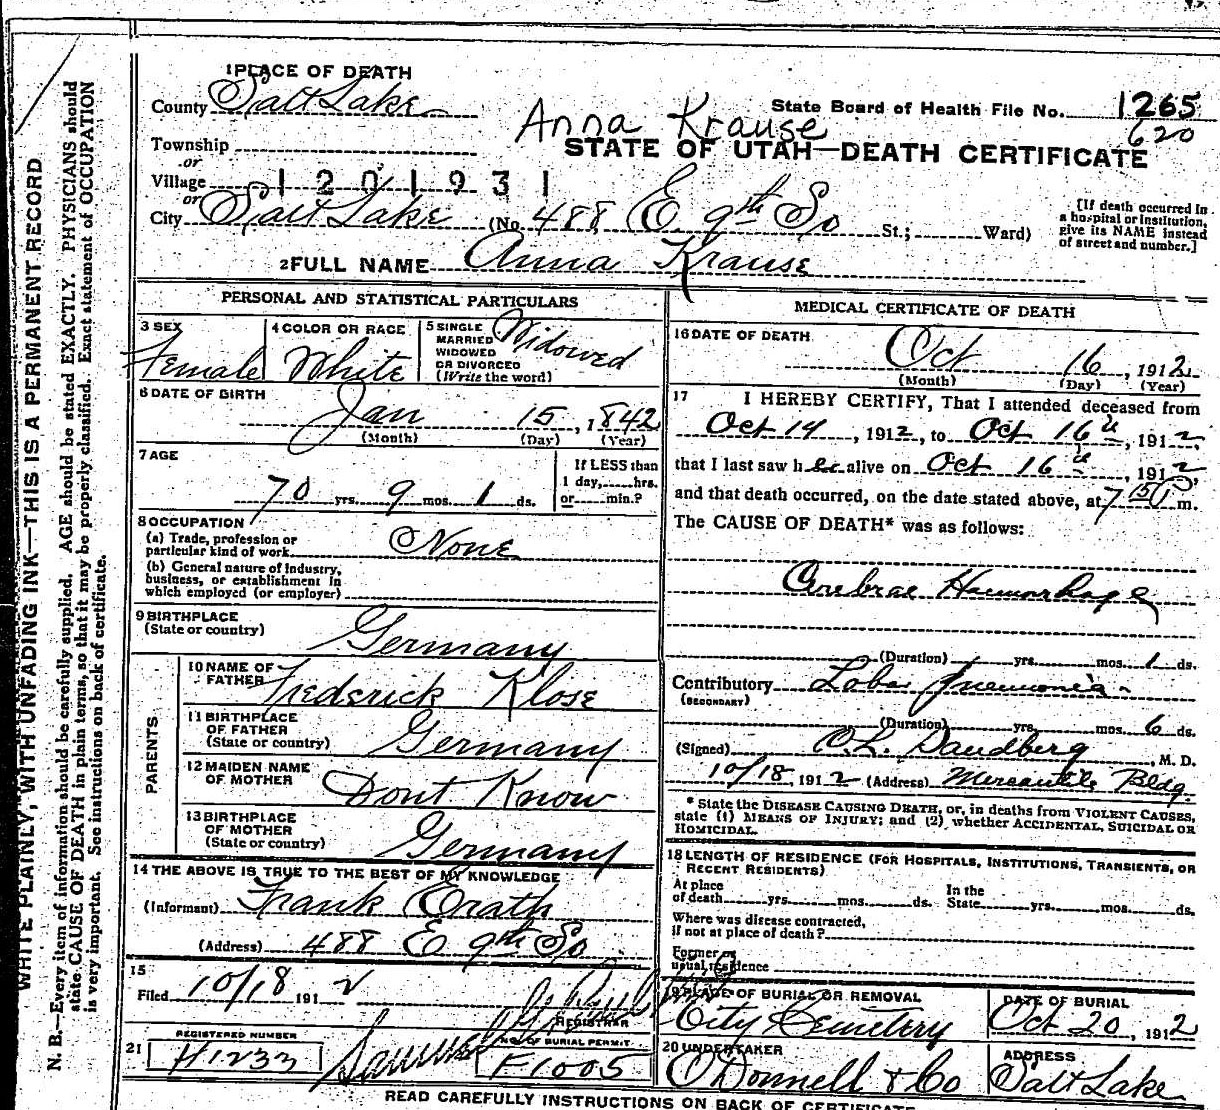 1 PLACE OF DEATH
County Salt Lake
State Board of Health File No. 1265
620
Anna Krause
Township
STATE OF UTAH—DEATH CERTIFICATE
or
Village 1201931
or
City Salt Lake (No. 488 E. 9th So St.; Ward)
[If death occurred in a hospital or institution, give its NAME instead of street and number.]
2 FULL NAME Anna Krause
PERSONAL AND STATISTICAL PARTICULARS
3 SEX Female
4 COLOR OR RACE White
5 SINGLE MARRIED WIDOWED OR DIVORCED (Write the word) Widowed
6 DATE OF BIRTH
Jan 15, 1842
(Month) (Day) (Year)
7 AGE
70 yrs. 9 mos. 1 ds.
If LESS than 1 day, hrs. or min.?
8 OCCUPATION
(a) Trade, profession or particular kind of work None
(b) General nature of industry, business, or establishment in which employed (or employer)
9 BIRTHPLACE
(State or country) Germany
PARENTS
10 NAME OF FATHER Frederick Klose
11 BIRTHPLACE OF FATHER (State or country) Germany
12 MAIDEN NAME OF MOTHER Dont Know
13 BIRTHPLACE OF MOTHER (State or country) Germany
14 THE ABOVE IS TRUE TO THE BEST OF MY KNOWLEDGE
(Informant) Frank Erath
(Address) 488 E 9th So
15
Filed 10/18 1912
REGISTRAR
21 REGISTERED NUMBER H1233
NO. OF BURIAL PERMIT F1005
MEDICAL CERTIFICATE OF DEATH
16 DATE OF DEATH
Oct 16, 1912
(Month) (Day) (Year)
17 I HEREBY CERTIFY, That I attended deceased from
Oct 14, 1912, to Oct 16th, 1912
that I last saw her alive on Oct 16th, 1912
and that death occurred, on the date stated above, at 7 15 P. m.
The CAUSE OF DEATH* was as follows:
Cerebral Haemorhage
(Duration) yrs. mos. 1 ds.
Contributory Lobar pneumonia
(SECONDARY)
(Duration) yrs. mos. 6 ds.
(Signed) M. D.
10/18, 1912 (Address) Mercantile Bldg.
* State the DISEASE CAUSING DEATH, or, in deaths from VIOLENT CAUSES, state (1) MEANS OF INJURY; and (2) whether ACCIDENTAL, SUICIDAL OR HOMICIDAL.
18 LENGTH OF RESIDENCE (FOR HOSPITALS, INSTITUTIONS, TRANSIENTS, OR RECENT RESIDENTS)
At place of death yrs. mos. ds. In the State yrs. mos. ds.
Where was disease contracted, if not at place of death?
Former or usual residence
19 PLACE OF BURIAL OR REMOVAL City Cemetery
DATE OF BURIAL Oct 20, 1912
20 UNDERTAKER O'Donnell & Co
ADDRESS Salt Lake
READ CAREFULLY INSTRUCTIONS ON BACK OF CERTIFICATE
WRITE PLAINLY, WITH UNFADING INK—THIS IS A PERMANENT RECORD
N. B.—Every item of information should be carefully supplied. AGE should be stated EXACTLY. PHYSICIANS should
state CAUSE OF DEATH in plain terms, so that it may be properly classified. Exact statement of OCCUPATION
is very important. See instructions on back of certificate.